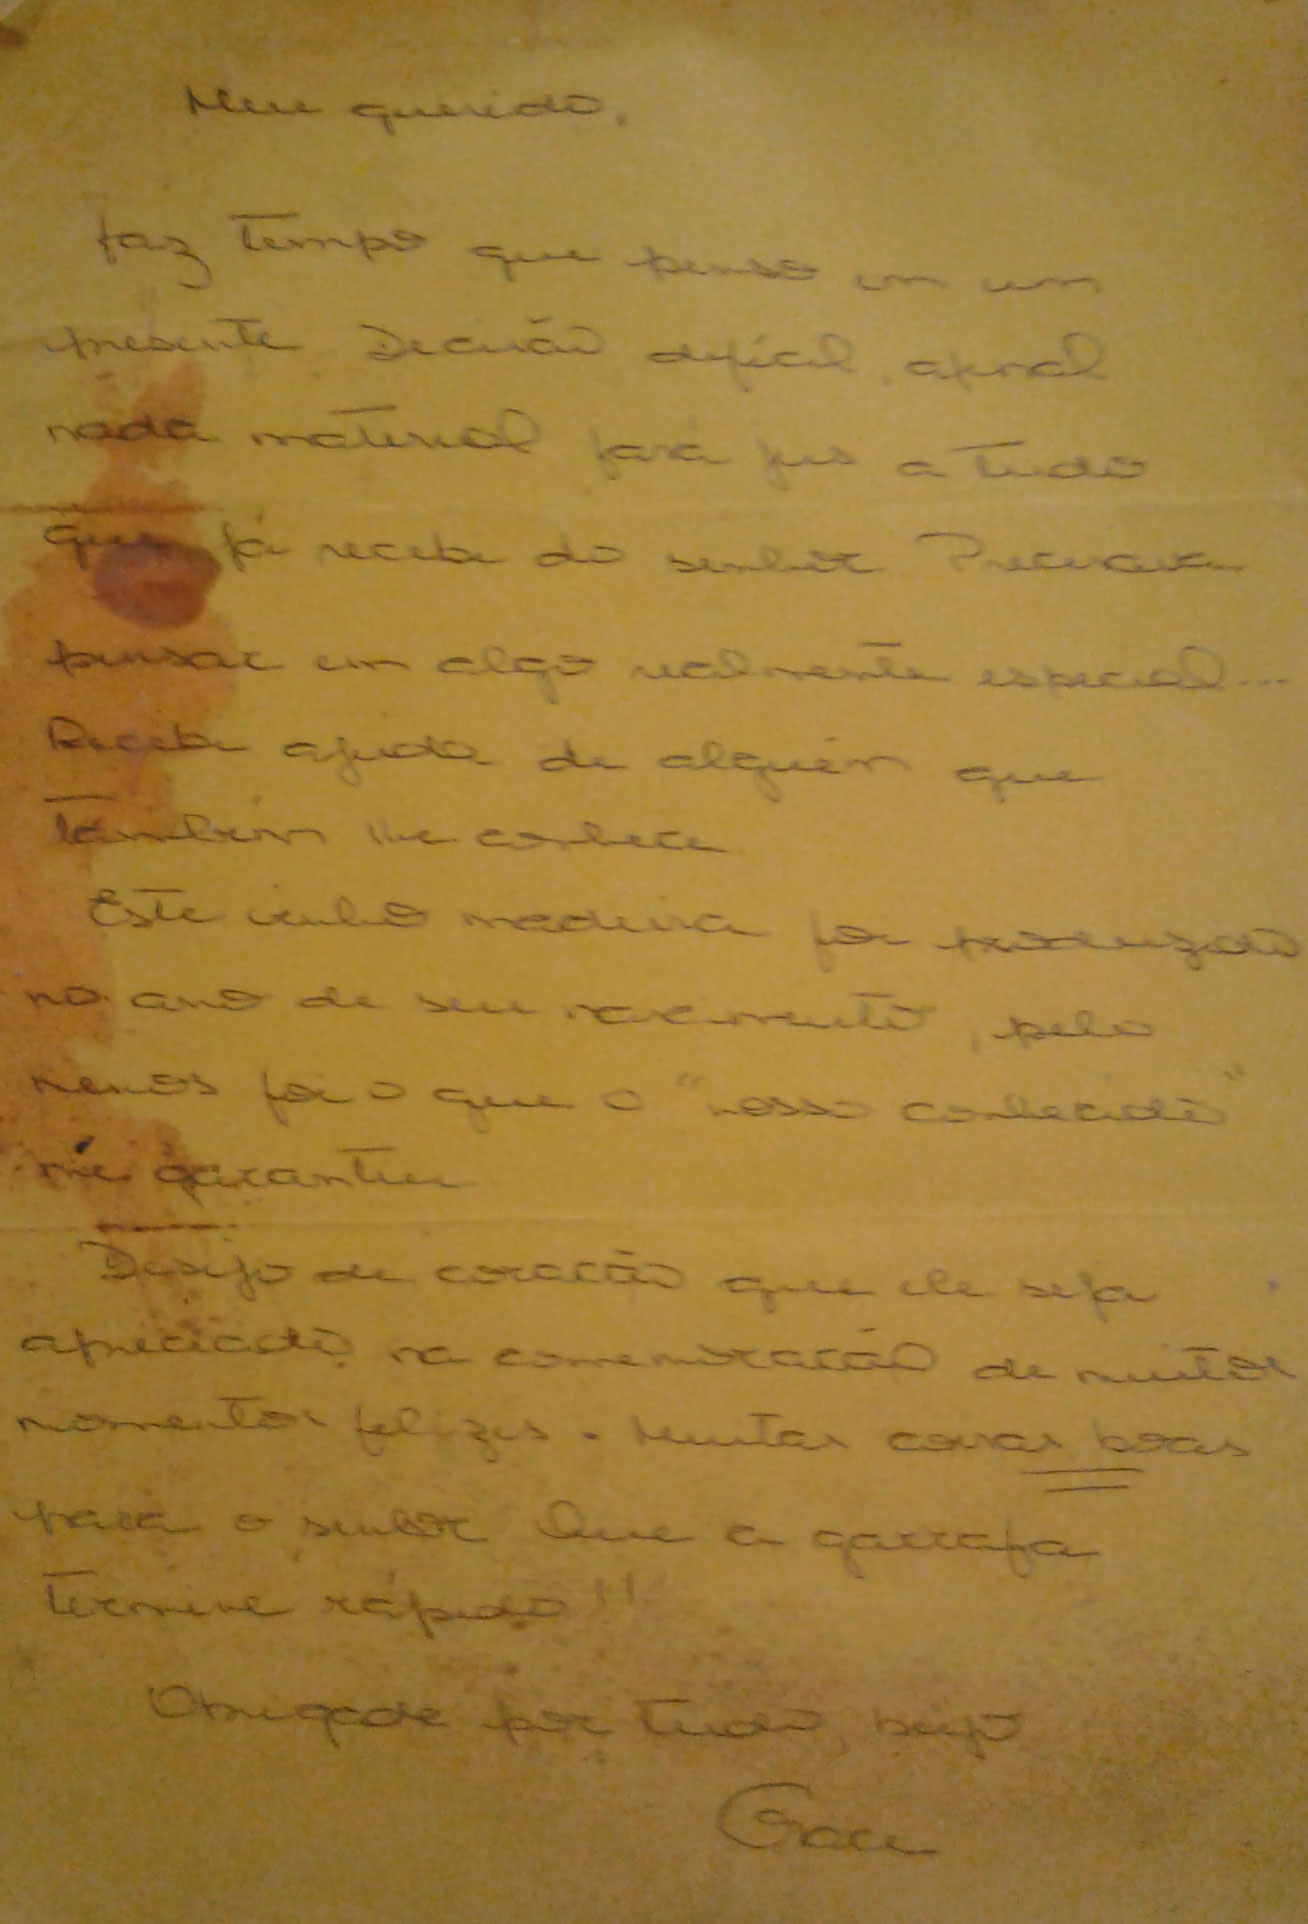 Meu querido,
faz tempo que penso em um
presente. Decisão difícil, afinal
nada material fará jus a tudo
que já recebi do senhor. Precisava
pensar em algo realmente especial...
Recebi ajuda de alguém que
também lhe conhece
Este vinho madeira foi produzido
no ano de seu nascimento, pelo
menos foi o que o "nosso conhecido"
me garantiu
Desejo de coração que ele seja
apreciado na comemoração de muitos
momentos felizes. Muitas coisas boas
para o senhor. Que a garrafa
termine rápido!!
Obrigada por tudo, beijo
Grace